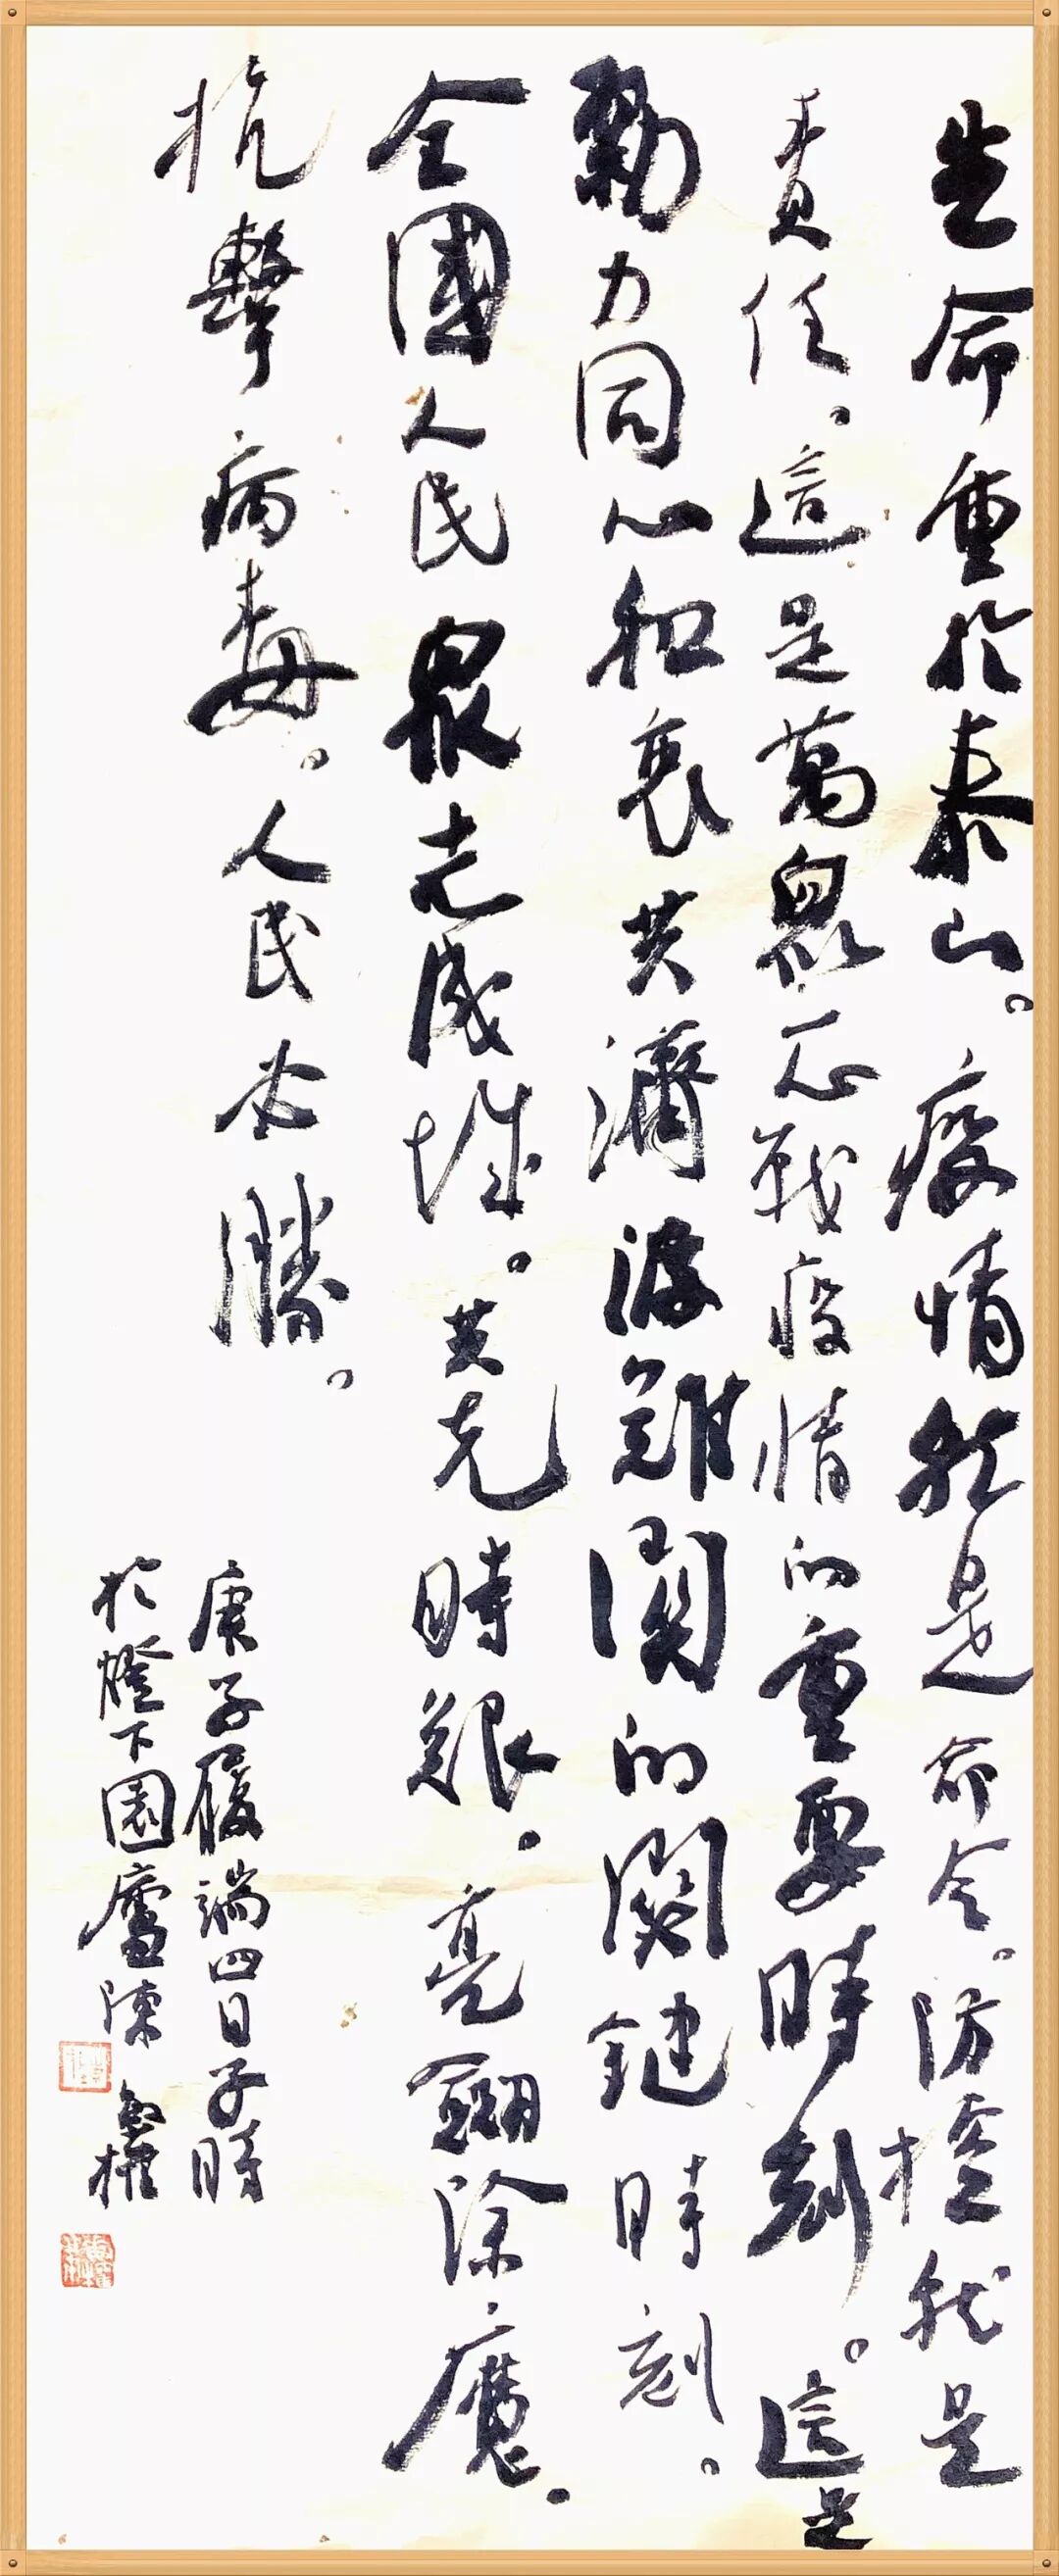 生命重於泰山。疫情就是命令。防控就是
責任、這是萬眾一心戰疫情的重要時刻。這是
勠力同心和衷共濟渡難關的關鍵時刻。
全國人民眾志成城。共克時艱、亮劍除魔、
抗擊病毒。人民必勝。
庚子履端四日子時
於燈下園廬陳權